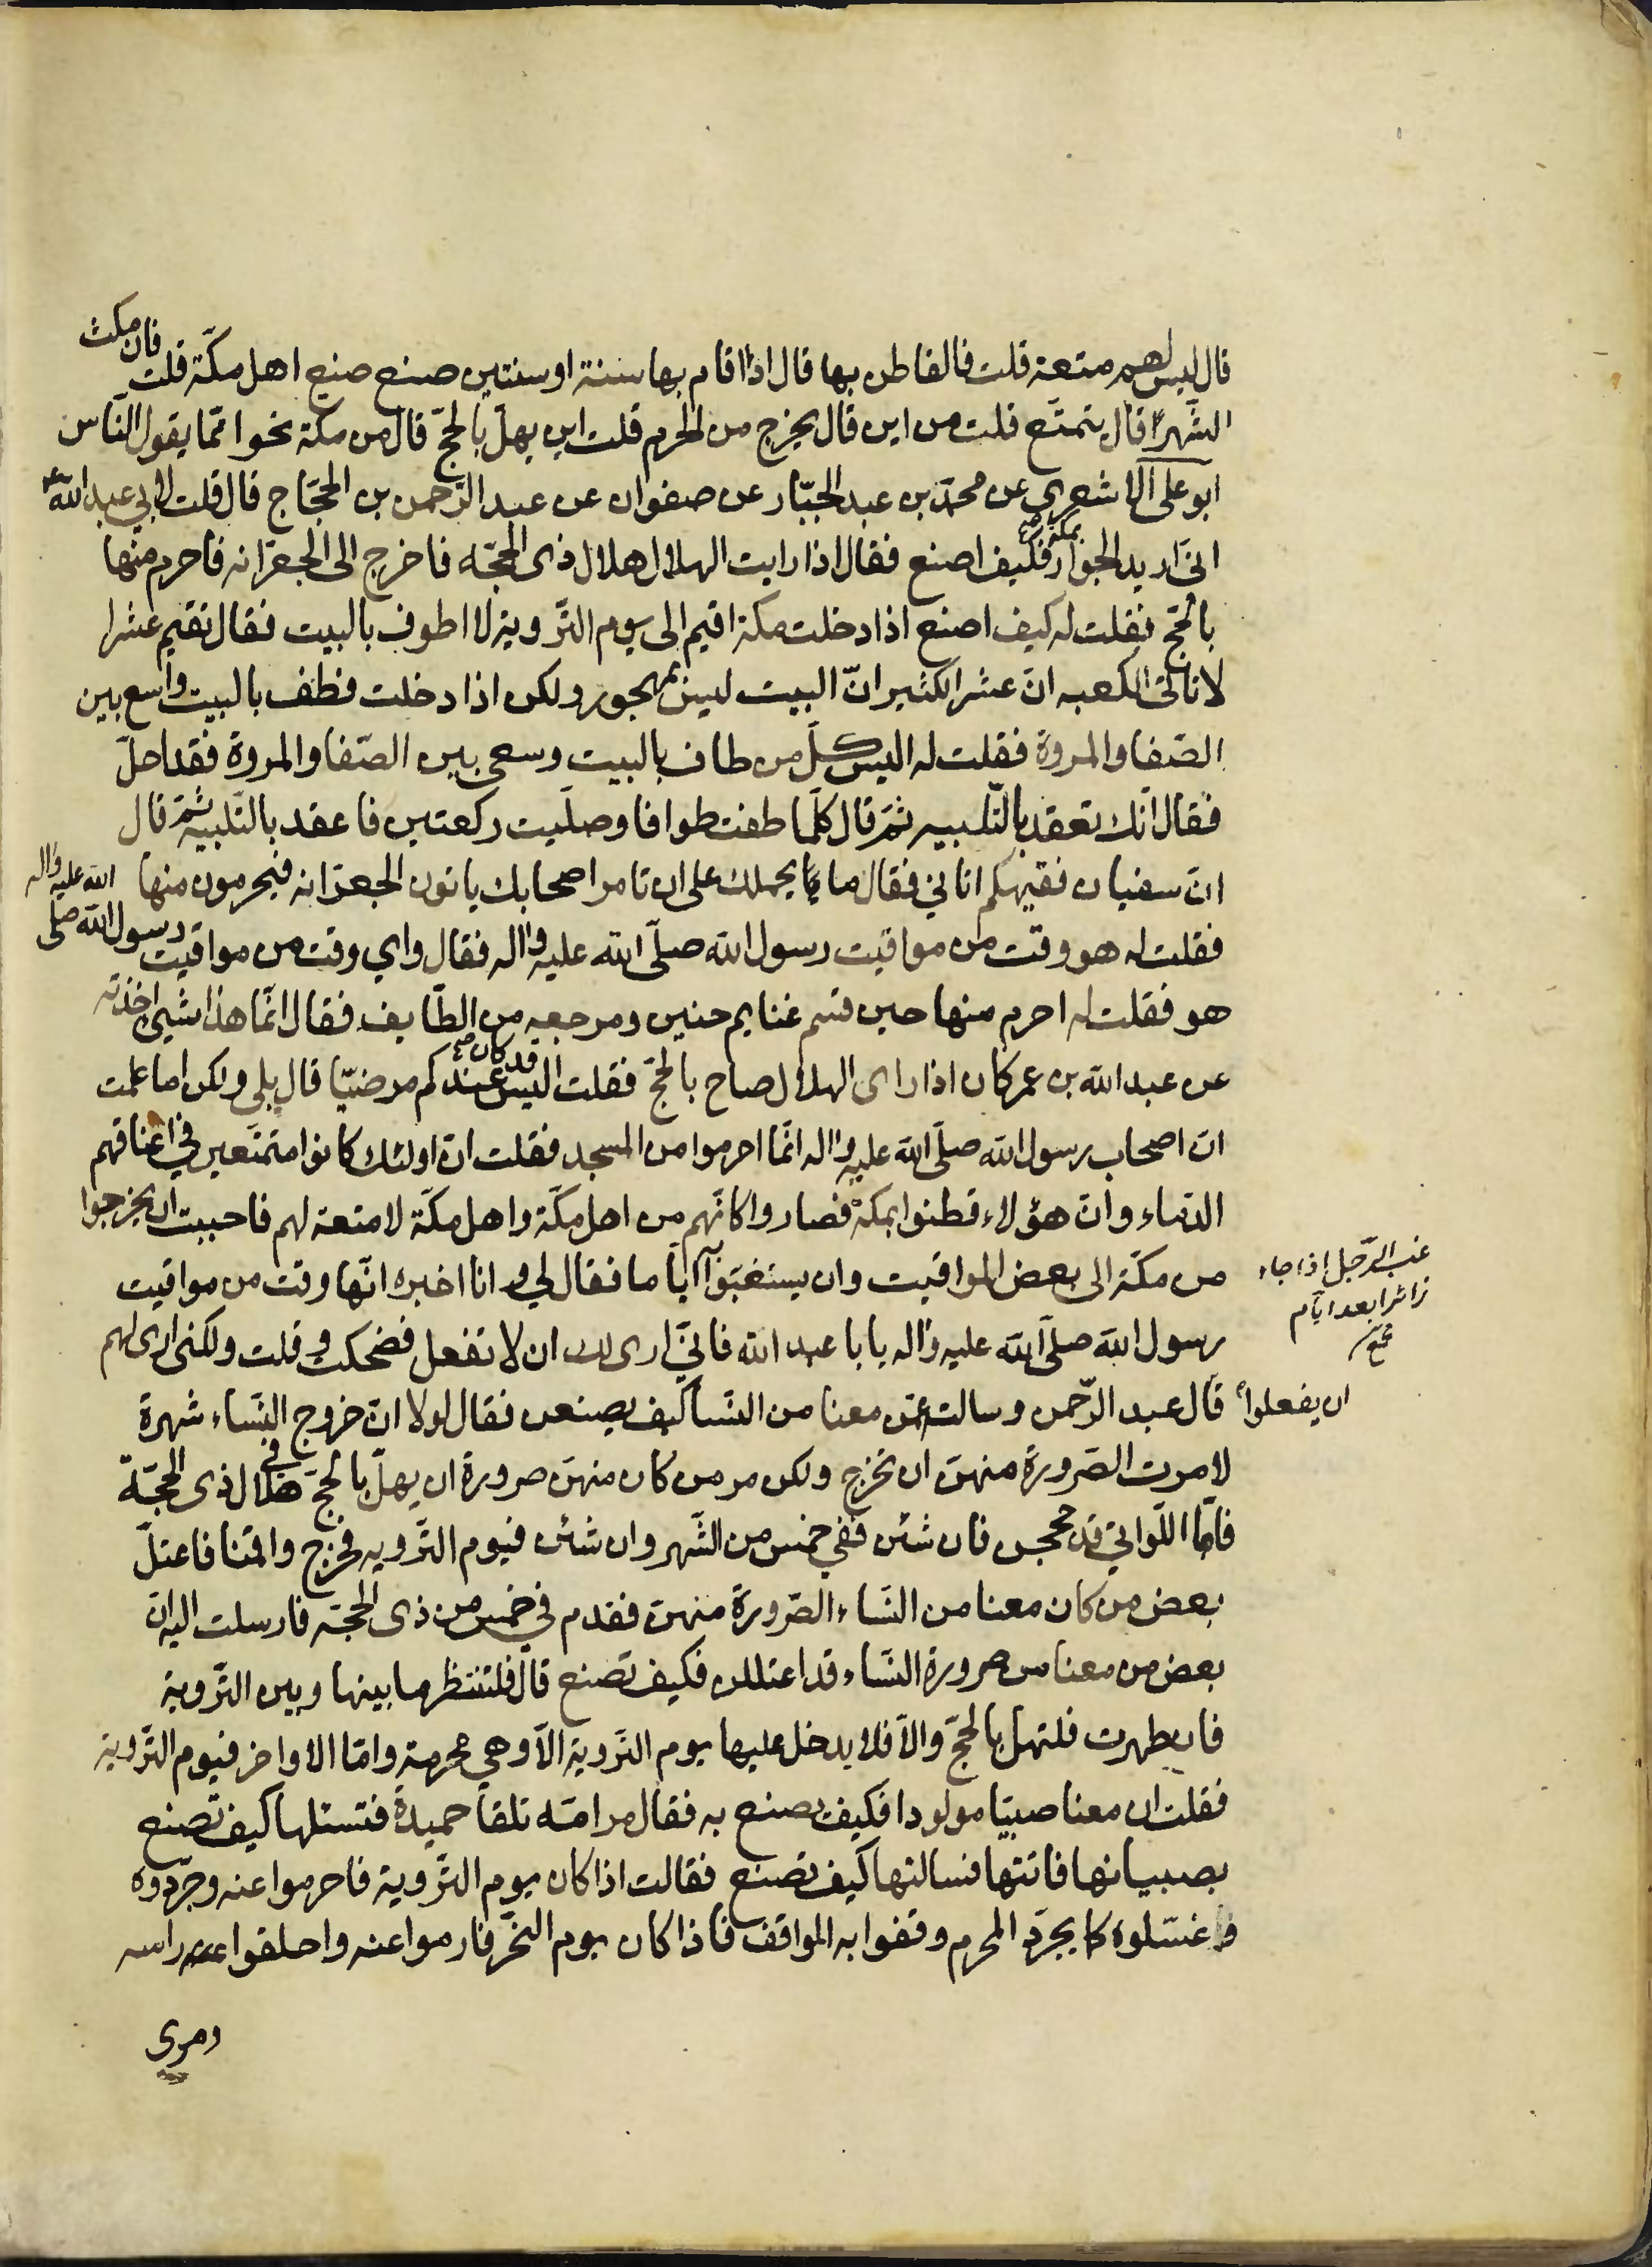 قال ليس لهم متعة قلت فالقاطن بها قال اذا اقام بها سنة او سنتين صنع صنع اهل مكّة قلت فان مكث
الشّهر قال يتمتّع قلت من اين قال يخرج من الحرم قلت اين يهلّ بالحجّ قال من مكة نحوا ممّا يقول النّاس
ابو على الاشعرى عن محمّد بن عبد الجبّار عن صفوان عن عبد الرّحمن بن الحجّاج قال قلت لابي عبد اللّه ع
انّى اريد الجوار بمكة فكيف اصنع فقال اذا رايت الهلال هلال ذى الحجّه فاخرج الى الجعرّانه فاحرم منها
بالحجّ فقلت له كيف اصنع اذا دخلت مكة اقيم الى يوم التّروية لا اطوف بالبيت فقال تقيم عشرا
لا تاتى الكعبه انّ عشرا لكثير انّ البيت ليس بمهجور ولكن اذا دخلت فطف بالبيت واسع بين
الصّفا والمروة فقلت له اليس كلّ من طاف بالبيت وسعى بين الصّفا والمروة فقد احلّ
فقال انّك تعقد بالتّلبيه ثمّ قال كلّما طفت طوافا وصلّيت ركعتين فاعقد بالتّلبيه ثمّ قال
انّ سفيان فقيهكم اتاني فقال ما يحملك على ان تامر اصحابك ياتون الجعرّانه فيحرمون منها
فقلت له هو وقت من مواقيت رسول اللّه صلّى اللّه عليه واله فقال واي وقت من مواقيت رسول اللّه صلّى اللّه عليه واله
هو فقلت له احرم منها حين قسم غنايم حنين ومرجعه من الطّايف فقال انّما هذا شيئ اخذته
عن عبد اللّه بن عمر كان اذا راى الهلال صاح بالحجّ فقلت اليس قد كان عندكم مرضيّا قال بلى ولكن اما علمت
انّ اصحاب رسول اللّه صلّى اللّه عليه واله انّما احرموا من المسجد فقلت انّ اولئك كانوا متمتّعين في اعناقهم
الدّماء وانّ هؤلاء قطنوا بمكة فصاروا كانّهم من اهل مكّة واهل مكّة لا متعة لهم فاحببت ان يخرجوا
من مكّة الى بعض المواقيت وان يستغبّوا به ايّاما فقال لي وانا اخبره انّها وقت من مواقيت
غب الرّجل اذا جاء
زائرا بعد ايّام
رسول اللّه صلّى اللّه عليه واله يا با عبد اللّه فانّي ارى لك ان لا تفعل فضحكت وقلت ولكنى ارى لهم
ان يفعلوا قال عبد الرّحمن وسالته عمّن معنا من النّسا كيف يصنعن فقال لولا انّ خروج النّساء شهرة
لامرت الصّرورة منهنّ ان تخرج ولكن مر من كان منهنّ صرورة ان يهلّ بالحجّ في هلال ذى الحجّة
فامّا اللّواتي قد حججن فان شئن ففي خمس من الشّهر وان شئن فيوم التّرويه فخرج واقمنا فاعتلّ
بعض من كان معنا من النّساء الصّرورة منهنّ فقدم في خمس من ذى الحجّه فارسلت اليه انّ
بعض من معنا من صرورة النّساء قد اعتللن فكيف تصنع قال فلتنتظر ما بينها وبين التّروية
فان طهرت فلتهلّ بالحجّ والّا فلا يدخل عليها يوم التّروية الّا وهي محرمة وامّا الاواخر فيوم التّروية
فقلت ان معنا صبيّا مولودا فكيف نصنع به فقال مر امّه تلقا حميدة فتسئلها كيف تصنع
بصبيانها فاتتها فسالتها كيف تصنع فقالت اذا كان يوم التّروية فاحرموا عنه وجرّدوه
وغسّلوه كما يجرّد المحرم وقفوا به المواقف فاذا كان يوم النّحر فارموا عنه واحلقوا راسه
ومرى